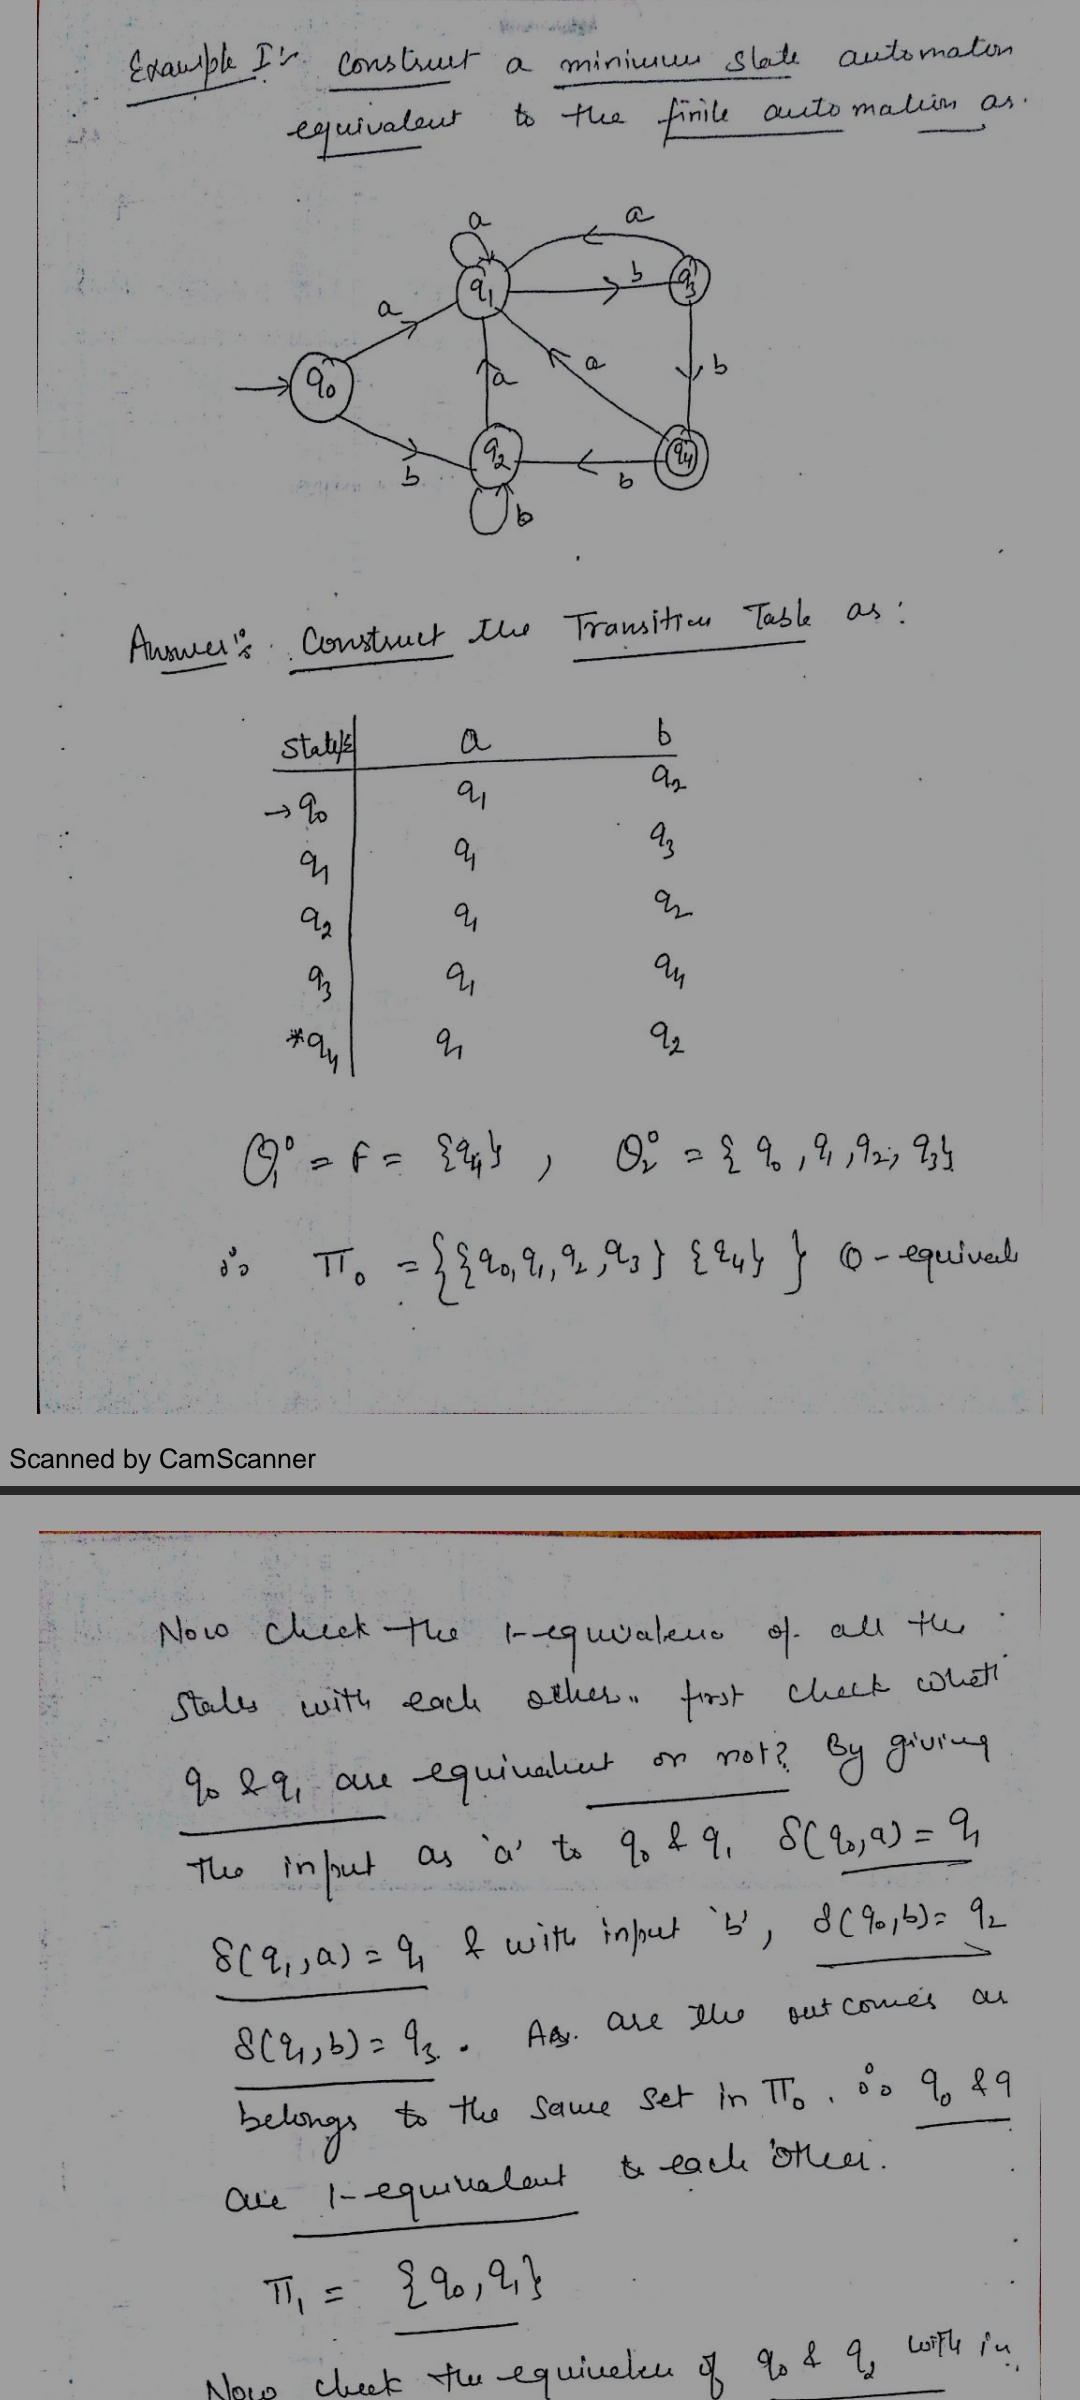 Example I:- Construct a minimum state automaton
equivalent to the finite automation as.
a
a
q1
b
q3
a
q0
a
a
b
b
q2
b
q4
b
Answer:- Construct the Transition Table as:
State/Σ a b
→q0 q1 q2
q1 q1 q3
q2 q1 q2
q3 q1 q4
*q4 q1 q2
Q1⁰ = F = {q4} , Q2⁰ = { q0, q1, q2, q3}
∴ π0 = {{q0, q1, q2, q3} {q4} } 0-equival
Scanned by CamScanner
Now check the 1-equivalenc of all the
states with each other. first check wheth
q0 & q1 are equivalent or not? By giving
the input as 'a' to q0 & q1 δ(q0,a) = q1
δ(q1,a) = q1 & with input 'b', δ(q0,b) = q2
δ(q1,b) = q3. As. are the outcomes are
belongs to the same set in π0. ∴ q0 & q
are 1-equivalent to each other.
π1 = {q0, q1}
Now check the equivelen of q0 & q2 with in